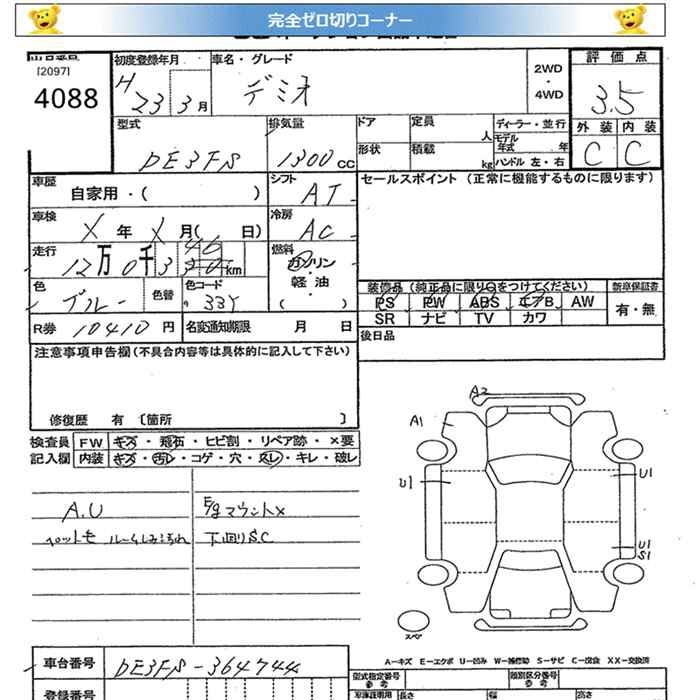 完全ゼロ切りコーナー
[2097]
4088
初度登録年月
H 23 3月
車名・グレード
デミオ
2WD
・
4WD
評価点
3.5
外装 内装
C C
型式
DE3FS
排気量
1300 CC
ドア 定員 人
形状 積載 kg
ディーラー・並行
モデル年式 年
ハンドル 左・右
車歴
自家用・( )
シフト
AT
セールスポイント (正常に機能するものに限ります)
車検
X年 X月( 日)
冷房
AC
走行
12万0千3 km
燃料
ガソリン
・
軽油
( )
色
ブルー
色替
色コード
33Y
装備品 (純正品に限り○をつけてください)
新車保証書
PS PW ABS エアB AW
有・無
SR ナビ TV カワ
R券 10410 円
名変通知期限 月 日
後日品
注意事項申告欄 (不具合内容等は具体的に記入して下さい)
修復歴 有 〔箇所 〕
検査員 FW キズ・飛石・ヒビ割・リペア跡・×要
記入欄 内装 キズ・汚レ・コゲ・穴・スレ・キレ・破レ
A.U
E/gマウント×
ペット毛 ルームしみ汚れ
下回りS.C
A2
A1
U1
U1
U1
S1
スペア
A－キズ E－エクボ U－凹み W－補修跡 S－サビ C－腐食 XX－交換済
車台番号 DE3FS-364744
型式指定番号
参考
類別区分番号
参考
登録番号
長さ 幅 高さ